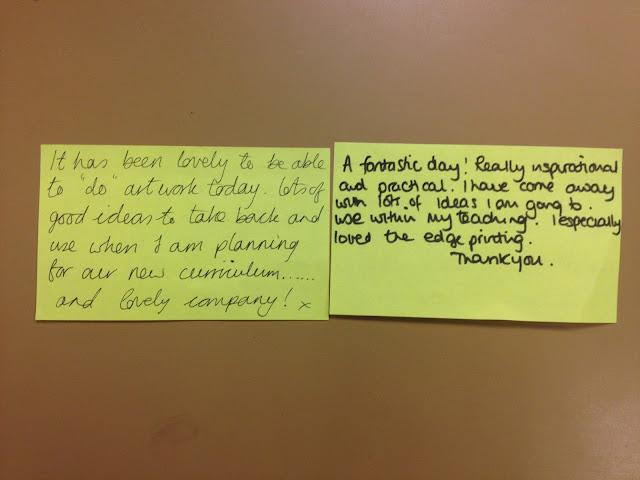 It has been lovely to be able
to "do" art work today. Lots of
good ideas to take back and
use when I am planning
for our new curriculum......
and lovely company! x
A fantastic day! Really inspirational
and practical. I have come away
with lots of ideas I am going to
use within my teaching. I especially
loved the edge printing.
Thankyou.